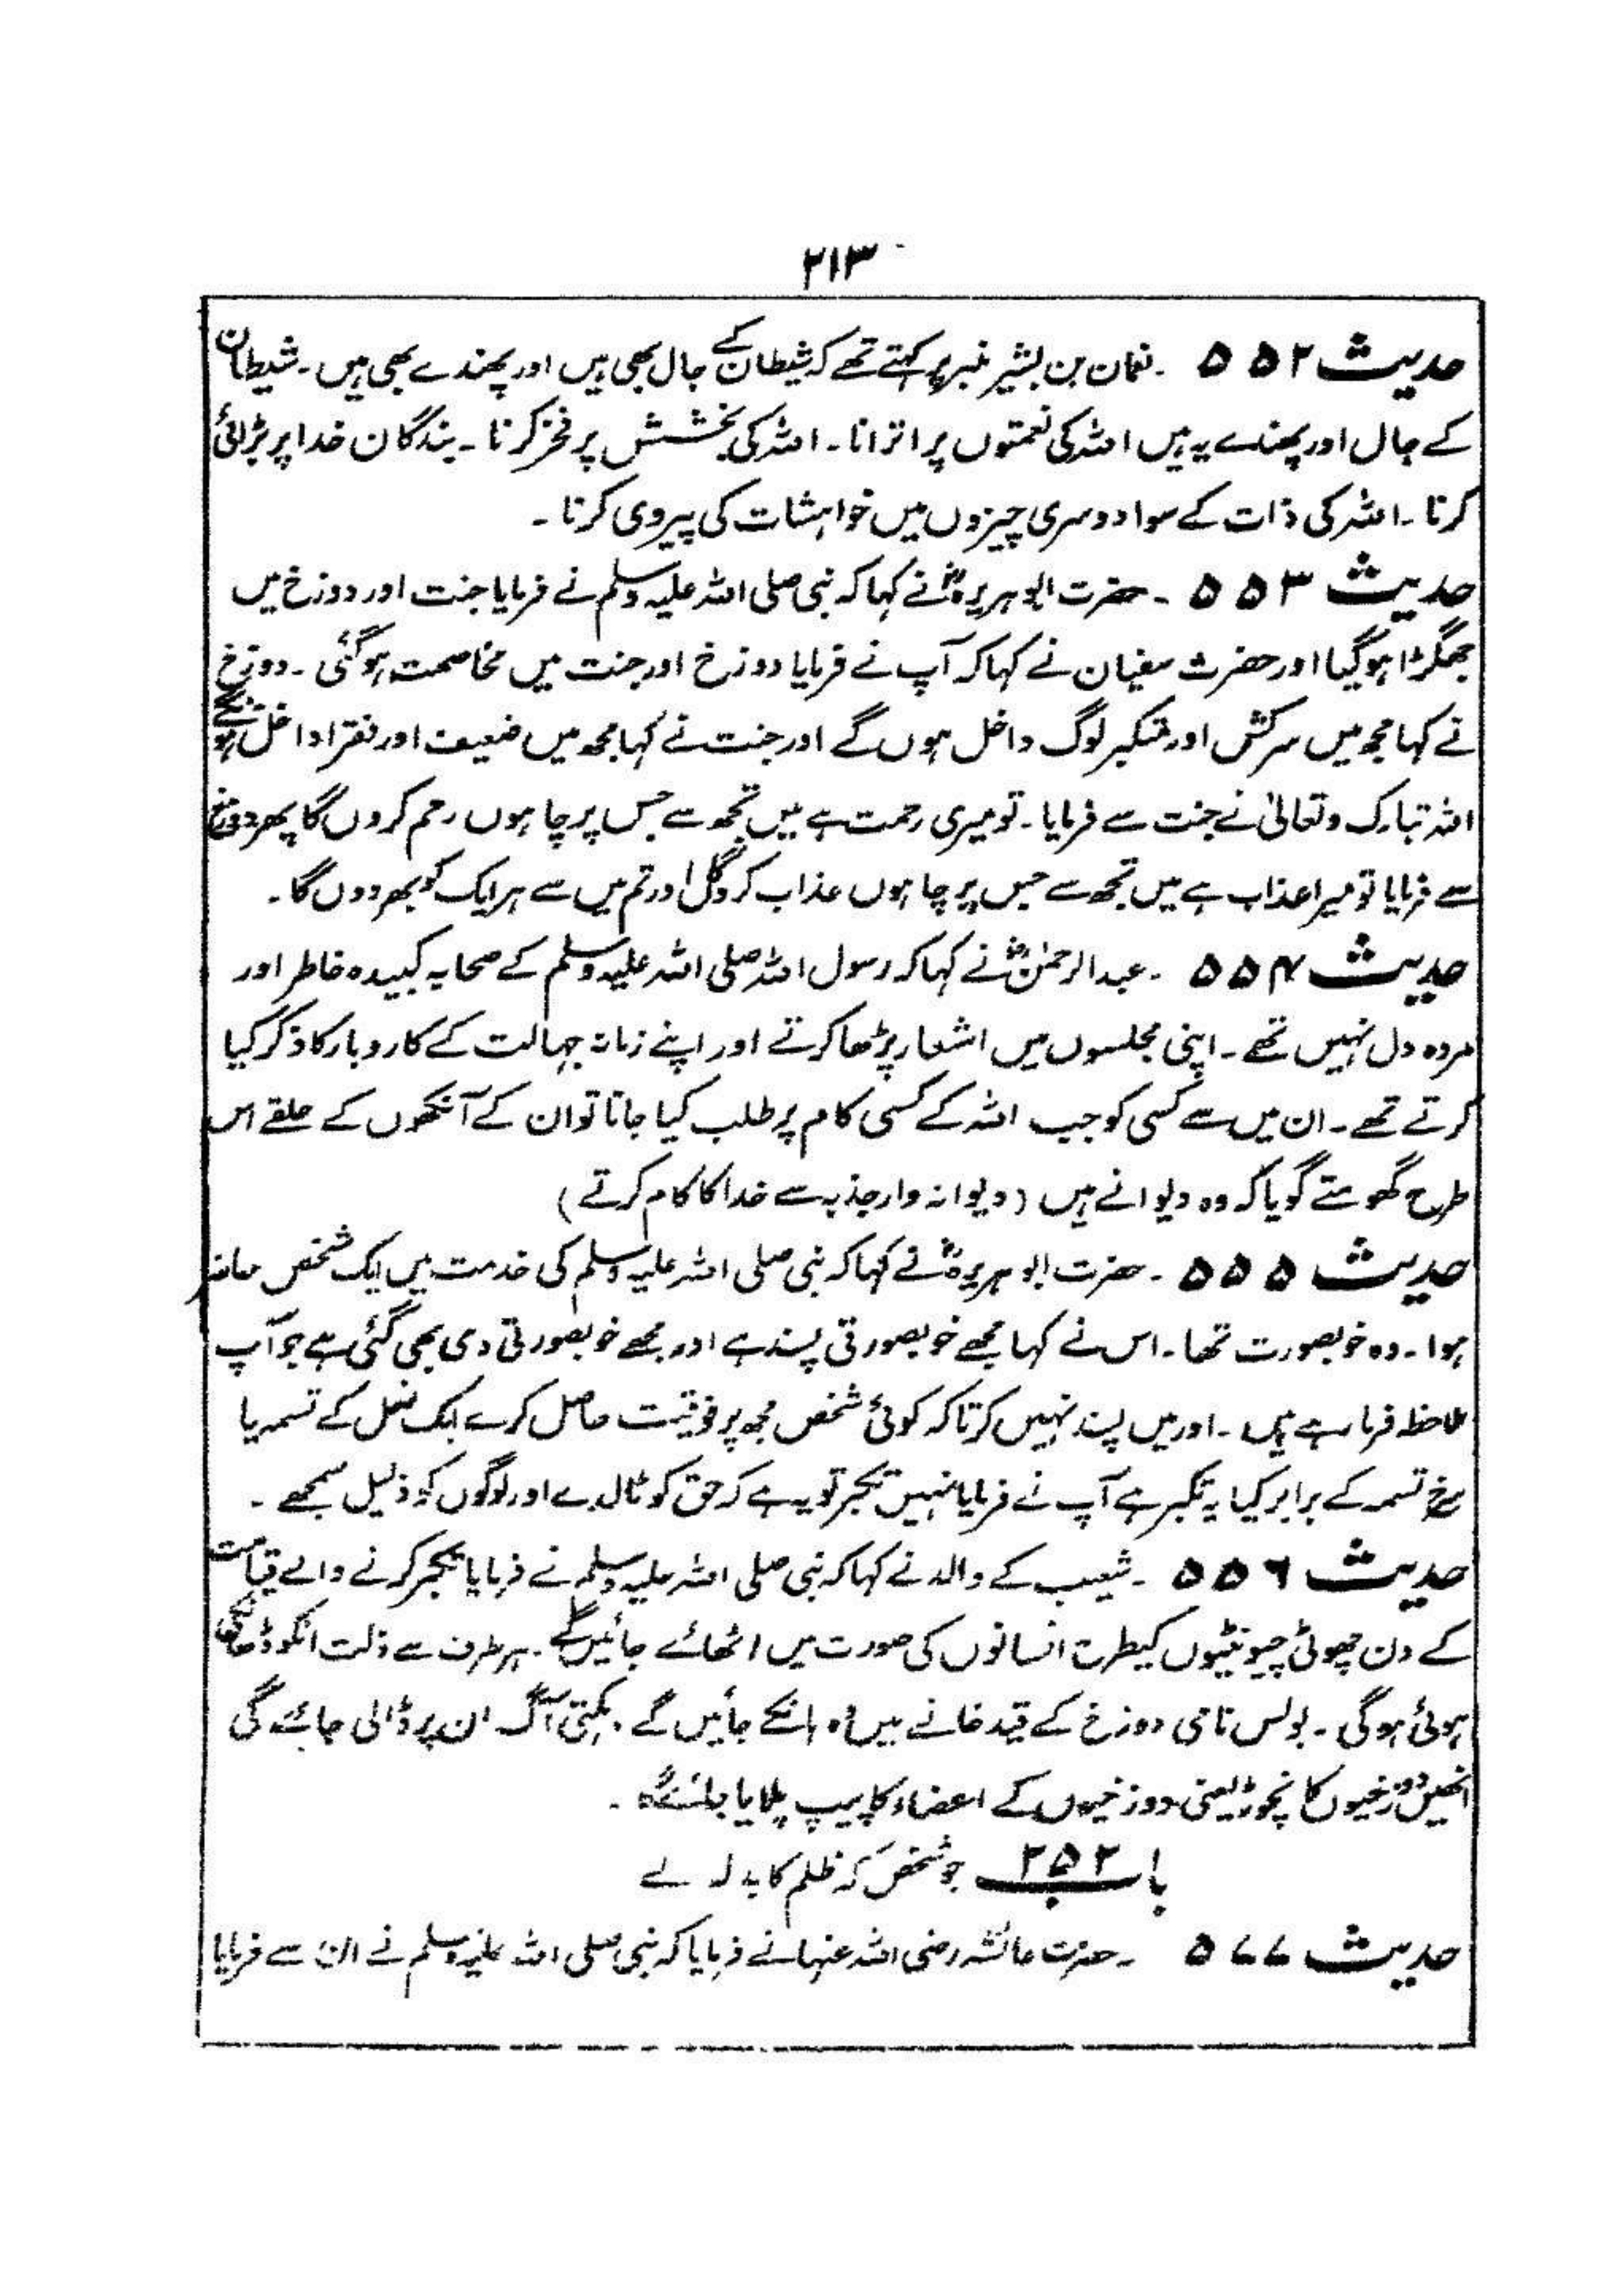 ۲۱۳
حدیث ۵۵۲ ۔ نعمان بن بشیر منبر پر کہتے تھے کہ شیطان کے جال بھی ہیں اور پھندے بھی ہیں۔ شیطان
کے جال اور پھندے یہ ہیں اللہ کی نعمتوں پر اترانا۔ اللہ کی بخشش پر فخر کرنا۔ بندگان خدا پر بڑائی
کرنا۔ اللہ کی ذات کے سوا دوسری چیزوں میں خواہشات کی پیروی کرنا۔
حدیث ۵۵۳ ۔ حضرت ابو ہریرہؓ نے کہا کہ نبی صلی اللہ علیہ وسلم نے فرمایا جنت اور دوزخ میں
جھگڑا ہو گیا اور حضرت سفیان نے کہا کہ آپ نے فرمایا دوزخ اور جنت میں مخاصمت ہو گئی۔ دوزخ
نے کہا مجھ میں سرکش اور متکبر لوگ داخل ہوں گے اور جنت نے کہا مجھ میں ضعیف اور فقرا داخل ہونگے
اللہ تبارک وتعالیٰ نے جنت سے فرمایا۔ تو میری رحمت ہے میں تجھ سے جس پر چاہوں رحم کروں گا پھر دوزخ
سے فرمایا تو میرا عذاب ہے میں تجھ سے جس پر چاہوں عذاب کروں گا اور تم میں سے ہر ایک کو بھر دوں گا۔
حدیث ۵۵۴ ۔ عبدالرحمٰنؓ نے کہا کہ رسول اللہ صلی اللہ علیہ وسلم کے صحابہ کبیدہ خاطر اور
مردہ دل نہیں تھے۔ اپنی مجلسوں میں اشعار پڑھا کرتے اور اپنے زمانہ جہالت کے کاروبار کا ذکر کیا
کرتے تھے۔ ان میں سے کسی کو جب اللہ کے کسی کام پر طلب کیا جاتا تو ان کے آنکھوں کے حلقے اس
طرح گھومتے گویا کہ وہ دیوانے ہیں (دیوانہ وار جذبہ سے خدا کا کام کرتے)
حدیث ۵۵۵ ۔ حضرت ابو ہریرہؓ نے کہا کہ نبی صلی اللہ علیہ وسلم کی خدمت میں ایک شخص حاضر
ہوا۔ وہ خوبصورت تھا۔ اس نے کہا مجھے خوبصورتی پسند ہے اور مجھے خوبصورتی دی بھی گئی ہے جو آپ
ملاحظہ فرما رہے ہیں۔ اور میں پسند نہیں کرتا کہ کوئی شخص مجھ پر فوقیت حاصل کرے ایک نعل کے تسمہ یا
سرخ تسمہ کے برابر کیا یہ تکبر ہے آپ نے فرمایا نہیں تکبر تو یہ ہے کہ حق کو ٹالدے اور لوگوں کو ذلیل سمجھے۔
حدیث ۵۵۶ ۔ شعیب کے والد نے کہا کہ نبی صلی اللہ علیہ وسلم نے فرمایا تکبر کرنے والے قیامت
کے دن چھوٹی چیونٹیوں کیطرح انسانوں کی صورت میں اٹھائے جائیں گے۔ ہر طرف سے ذلت انکو ڈھانکی
ہوئی ہو گی۔ بولس نامی دوزخ کے قید خانے میں وہ ہانکے جائیں گے۔ آگ ان پر ڈالی جائے گی
انھیں دوزخیوں کا نچوڑ یعنی دوزخیوں کے اعضاء کا پیپ پلایا جائے گا۔
باب ۲۵۲ جو شخص کہ ظلم کا بدلہ لے
حدیث ۵۷۷ ۔ حضرت عائشہ رضی اللہ عنہا نے فرمایا کہ نبی صلی اللہ علیہ وسلم نے ان سے فرمایا